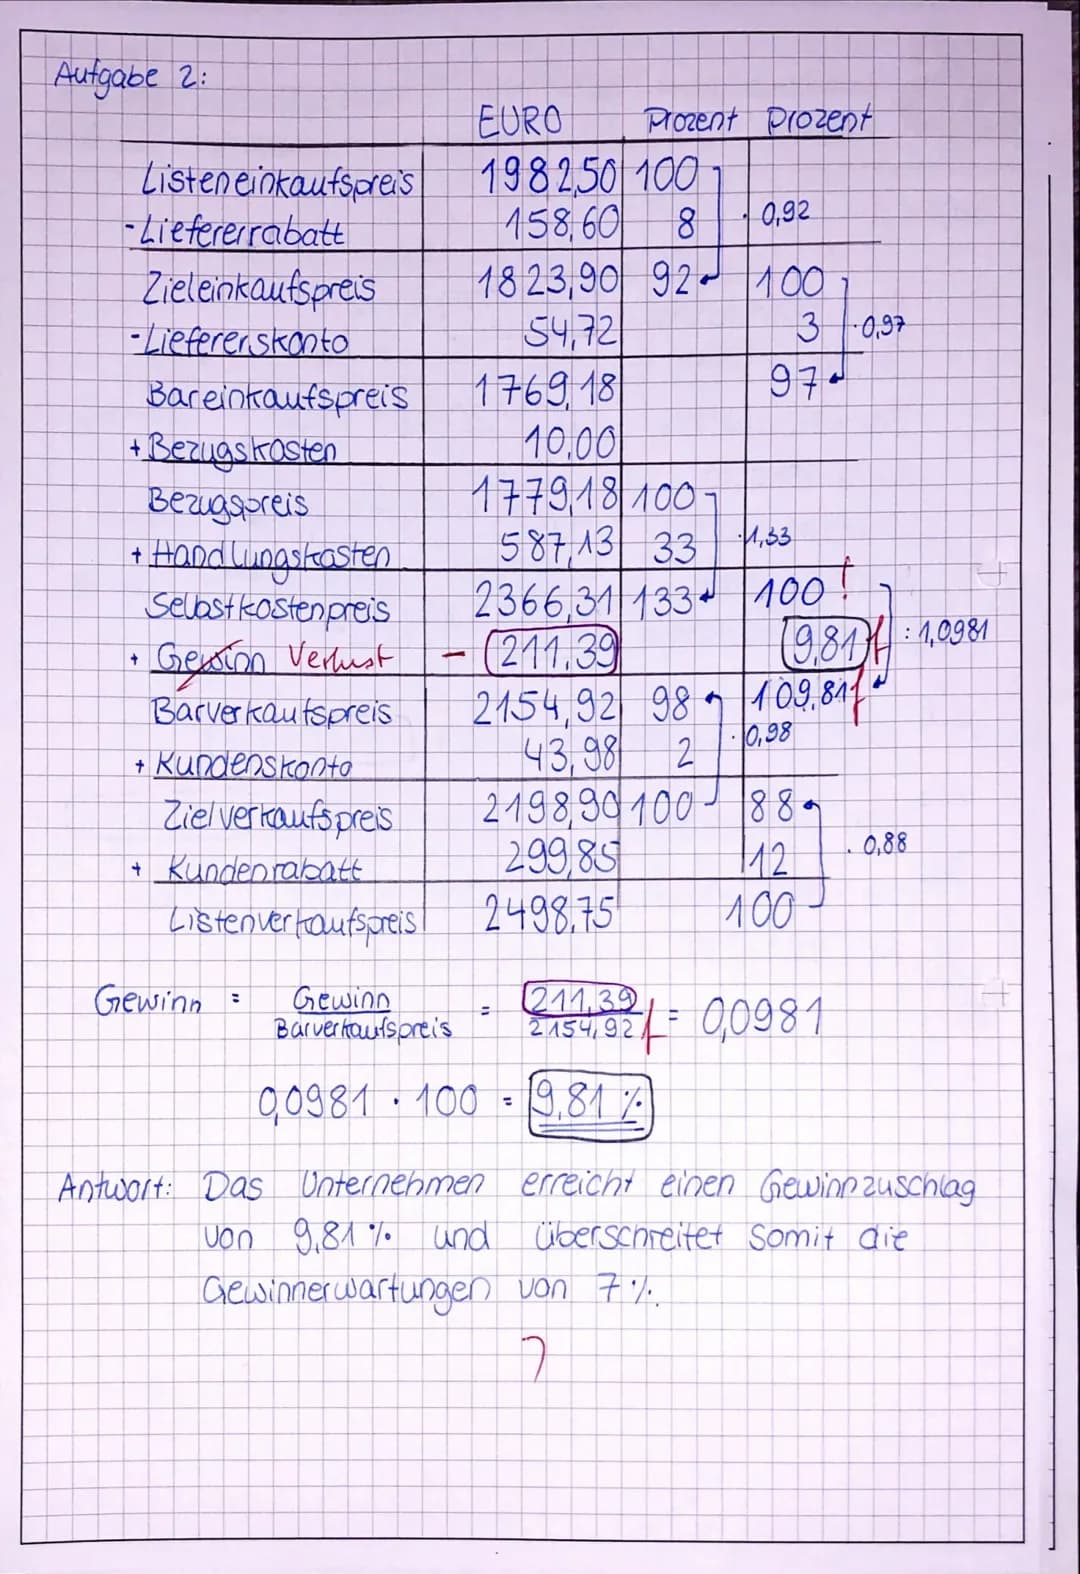 Aufgabe 2:
EURO Prozent Prozent
Listeneinkaufspreis 1982,50 100
- Liefererrabatt 158,60 8 · 0,92
Zieleinkaufspreis 1823,90 92 100
- Liefererskonto 54,72 3 · 0,97
Bareinkaufspreis 1769,18 97
+ Bezugskosten 10,00
Bezugspreis 1779,18 100
+ Handlungskosten 587,13 33 · 1,33
Selbstkostenpreis 2366,31 133 100 !
+ Gewinn Verlust - 211,39 9,81 f : 1,0981
Barverkaufspreis 2154,92 98 109,81 f
+ Kundenskonto 43,98 2 · 0,98
Zielverkaufspreis 2198,90 100 88
+ Kundenrabatt 299,85 12 · 0,88
Listenverkaufspreis 2498,75 100
Gewinn = Gewinn / Barverkaufspreis = 211,39 / 2154,92 f = 0,0981
0,0981 · 100 = 9,81 %
Antwort: Das Unternehmen erreicht einen Gewinnzuschlag
von 9,81 % und überschreitet somit die
Gewinnerwartungen von 7 %.